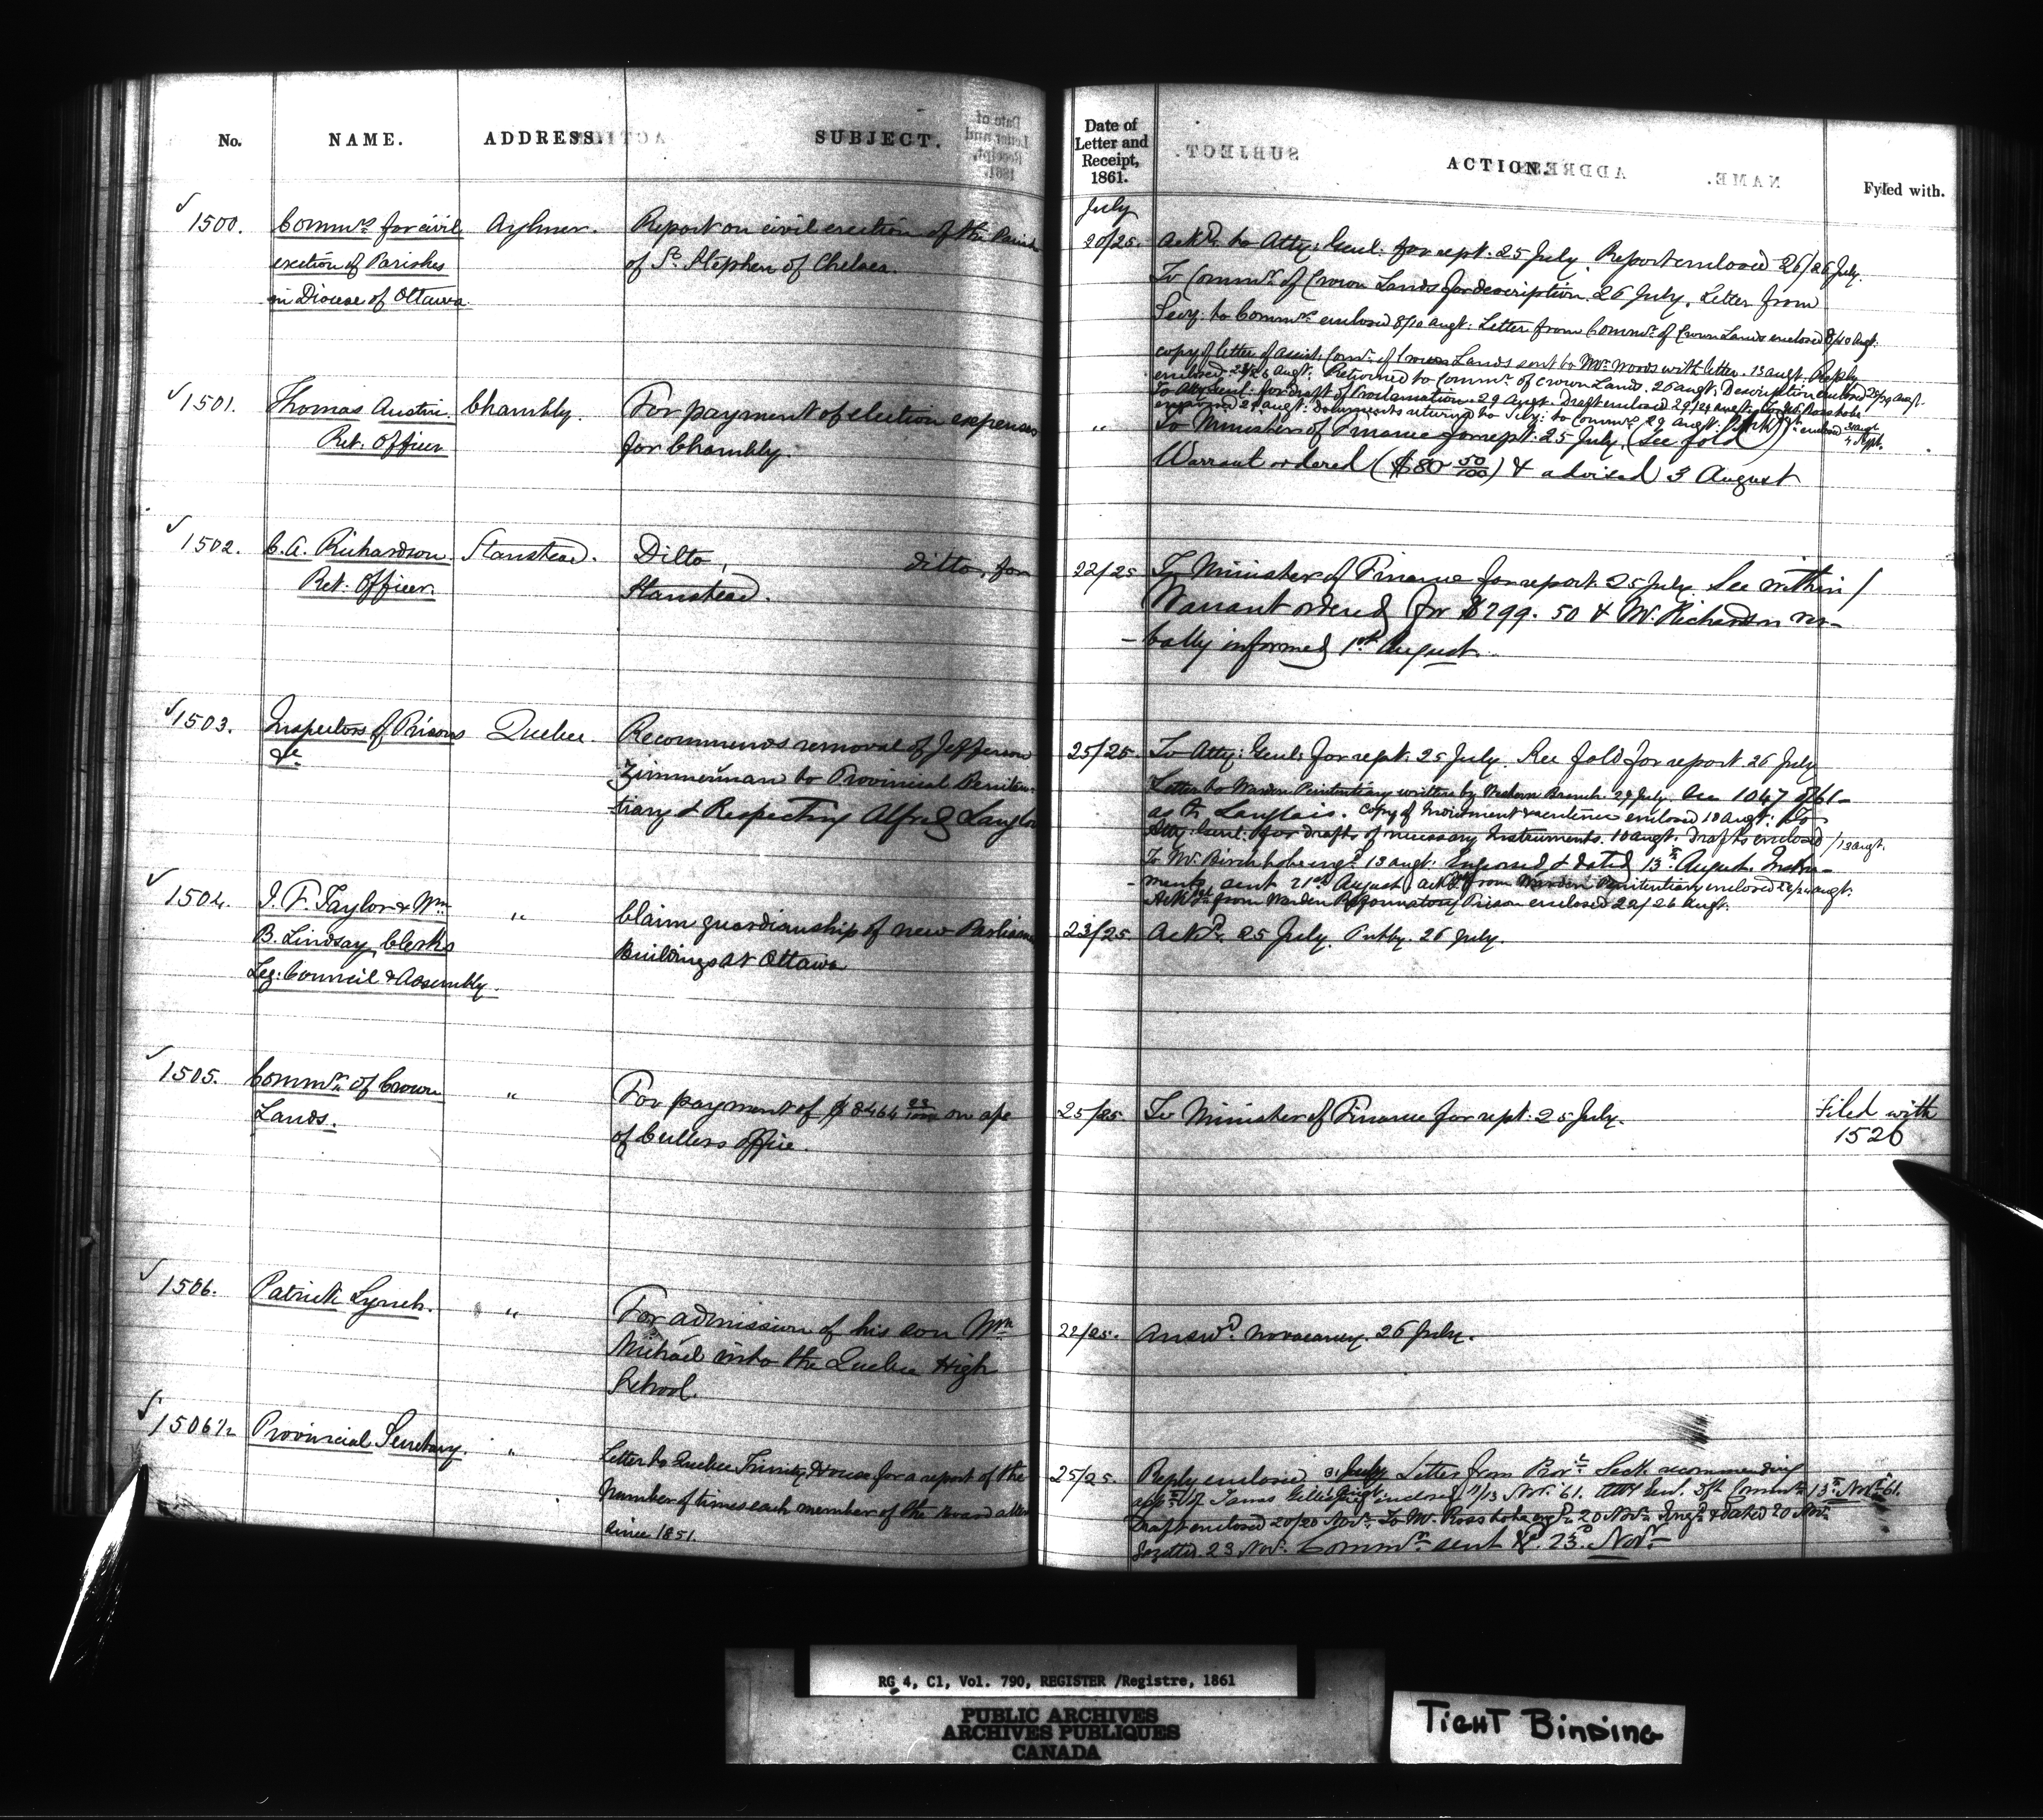 No. NAME. ADDRESS. SUBJECT.
Date of Letter and Receipt, 1861. ACTION. Fyled with.
July
1500. Commrs. for civil Aylmer. Report on civil erection of the Parish
erection of Parishes of St. Stephen of Chelsea.
in Diocese of Ottawa
20/25. Ackd. to Atty: Genl: for rept. 25 July. Report enclosed 26/26 July.
To Commr. of Crown Lands for description. 26 July. Letter from
Secy. to Commrs. enclosed 8/10 augt: Letter from Commr. of Crown Lands enclosed 8/10 Augt:
copy of letter of assist: Comr. of Crown Lands sent to Mr. Woods with letter. 13 augt. Reply
enclosed augt: Returned to Commr. of Crown Lands. 26 augt: Description enclosed 28/29 augt.
To Atty Genl: for draft of Proclamation 29 augt. Draft enclosed 29/29 augt: To Mr. Ross to be
engrossed 29 augt: Documents returned to Secy: to Commrs. 29 augt: enclosed 31 augt
4 Sept.
1501. Thomas Austin Chambly. For payment of election expenses
Ret: Officer for Chambly.
" To Minister of Finance for rept. 25 July. (See fold)
Warrant ordered ($80 50/100) & advised 3 August
1502. C. A. Richardson Stanstead. Ditto, ditto, for
Ret: Officer. Stanstead.
22/25 To Minister of Finance for report 25 July. See within /
Warrant ordered for $299.50 & Mr. Richardson ver-
-bally informed 1st August.
1503. Inspectors of Prisons Quebec. Recommends removal of Jefferson
&c Zimmerman to Provincial Peniten-
tiary & Respecting Alfred Langlo
25/25. To Atty: Genl: for rept: 25 July. See fold for report 26 July
Letter to Warden Penitentiary written by Western Branch 29 July. See 1047 of 61-
as to Langlais. Copy of Indictment & sentence enclosed 10 augt: To
Atty: Genl: for drafts of necessary Instruments. 10 augt. Drafts enclosed /12 augt.
To Mr. Birch to be engd. 13 augt: Engrossed & dated 13th August. Instru-
-ments sent 21st August. Ackt. from Warden Penitentiary enclosed augt:
Ackt. from Warden Reformatory Prison enclosed 22/26 Augt.
1504. J. F. Taylor & Wm. " Claim guardianship of new Parliam
B. Lindsay, Clerks Buildings at Ottawa
Leg: Council & Assembly.
23/25 Ackd. 25 July. Putby. 26 July.
1505. Commr. of Crown " For payment of $8464 23/100 on a/c
Lands. of Cullers office.
25/25. To Minister of Finance for rept. 25 July. Filed with
1526
1506. Patrick Lynch. " For admission of his son Wm
Michael into the Quebec High
School.
22/25. Answd. no vacancy. 26 July.
1506½ Provincial Secretary. " Letter to Quebec Trinity House for a report of the
number of times each member of the Board atten
since 1851.
25/25. Reply enclosed 31 July. Letter from Provl. Secy. recommending
appt. of James Gillespie enclosed 11/13 Nov. 61. Atty Genl. Dft Commn. 13th Novr. 61.
Draft enclosed 20/20 Novr. To Mr. Ross to be engd. 20 Novr. Engd. & dated 20 Novr.
Gazette. 23 Novr. Commn. sent 23d. Novr
RG 4, C1, Vol. 790, REGISTER /Registre, 1861
PUBLIC ARCHIVES
ARCHIVES PUBLIQUES
CANADA
TIGHT BINDING